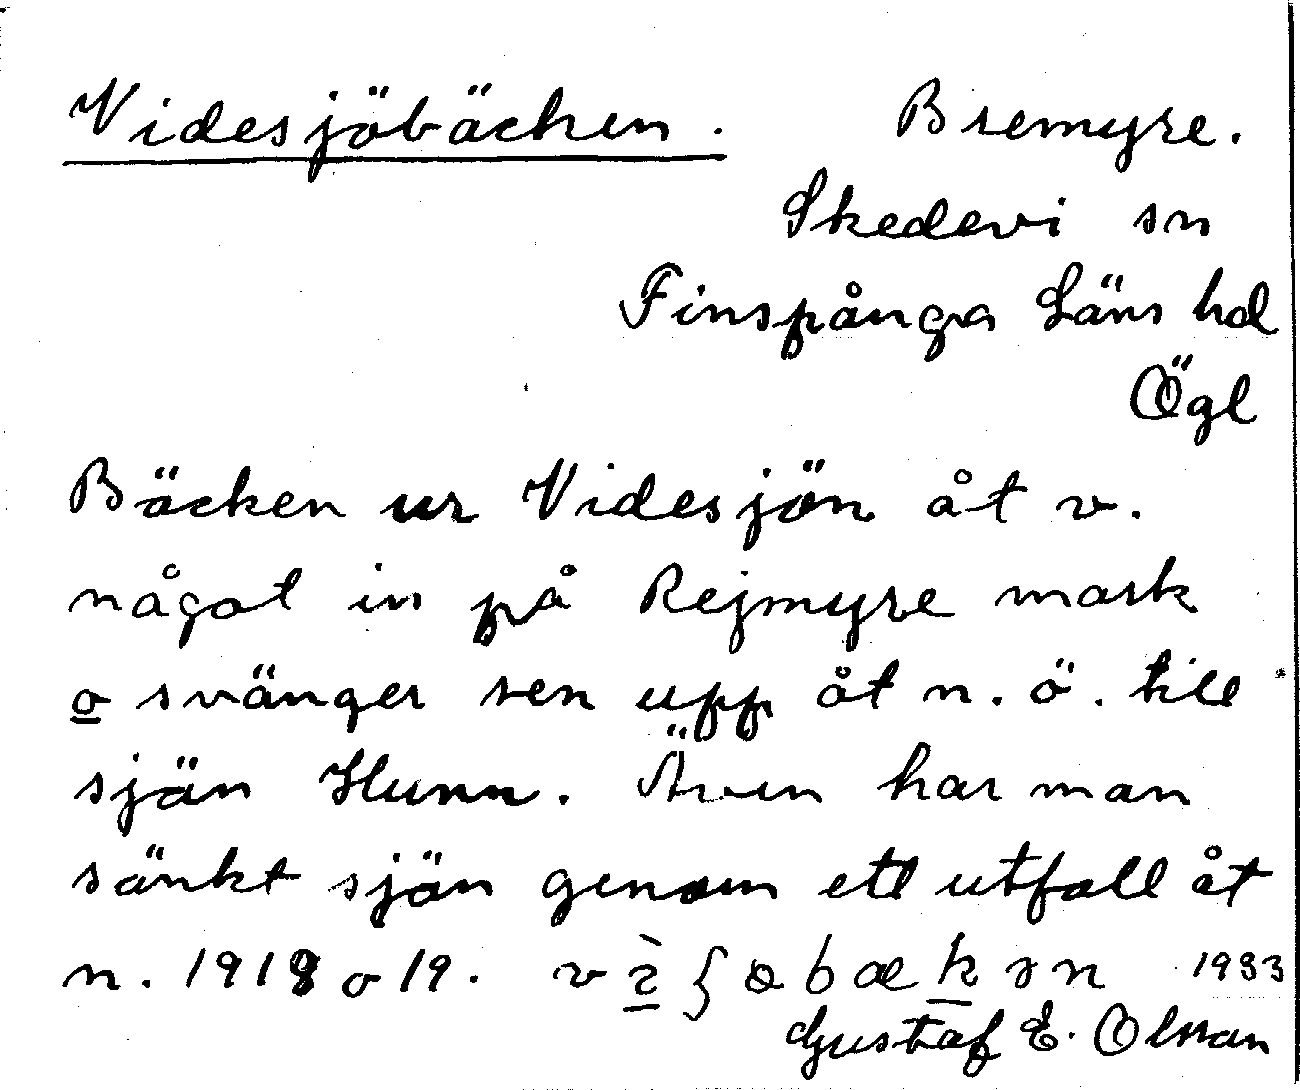 Videsjöbäcken. Bremyre.
Skedevi sn
Finspånga Läns hd
Ögl
Bäcken ur Videsjön åt v.
något in på Rejmyre mark
o svänger sen upp åt n. ö. till
sjön Hunn. Även har man
sänkt sjön genom ett utfall åt
n. 1918 o 19. 1933
Gustaf E. Olsson